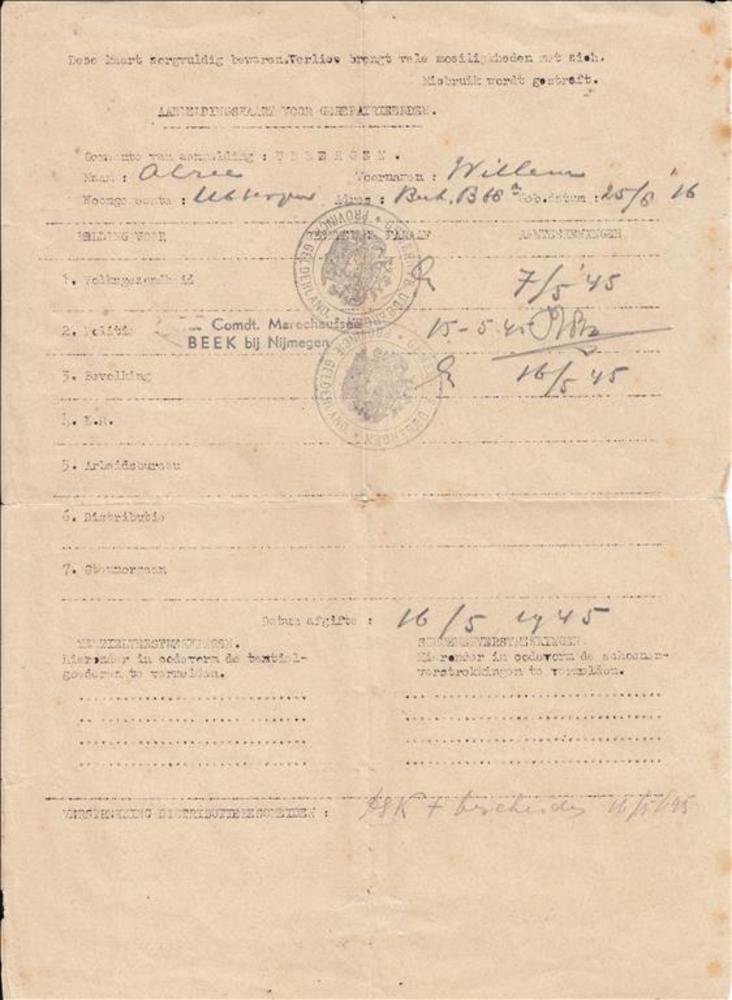 Deze kaart zorgvuldig bewaren. Verlies brengt vele moeilijkheden met zich.
Misbruik wordt gestraft.
AANMELDINGSKAART VOOR GEREPATRIEERDEN.
Gemeente van aanmelding : UBBERGEN.
Naam : Voornamen : Willem
Woongemeente : Ubbergen Adres : Beek, B68a Geb.datum : 25/8 '16
MELDING VOOR PARAAF AANTEEKENINGEN
1. Volksgezondheid 7/5 '45
2. Politie Comdt. Marechaussee 15-5-45
BEEK bij Nijmegen
3. Bevolking 16/5 45
4. E.H.
5. Arbeidsbureau
6. Distributie
7. Steunorgaan
Datum afgifte : 16/5 1945
TEXTIELVERSTREKKINGEN. SCHOENENVERSTREKKINGEN.
Hieronder in codevorm de textiel- Hieronder in codevorm de schoenen-
goederen te vermelden. verstrekkingen te vermelden.
VERSTREKKING DISTRIBUTIEBESCHEIDEN : + bescheiden 16/5/45
PROVINCIE GELDERLAND
UBBERGEN
PROVINCIE GELDERLAND
UBBERGEN